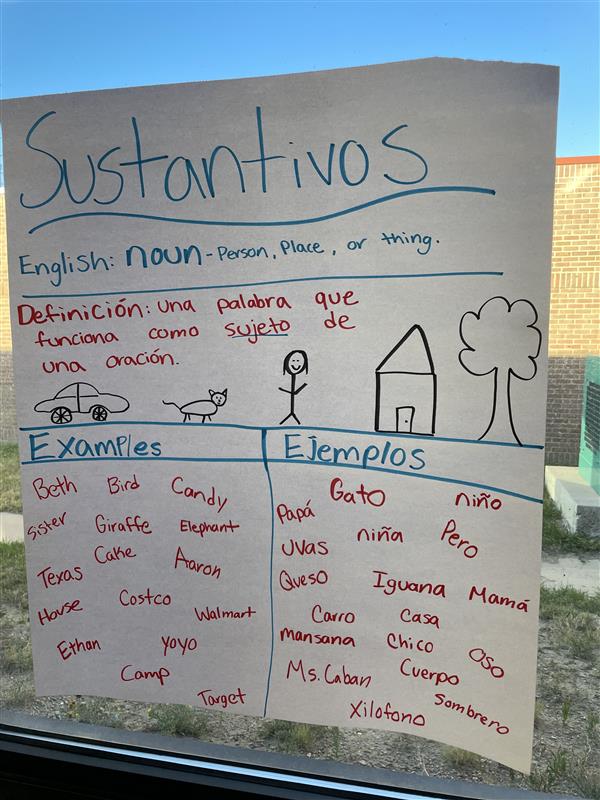 Sustantivos
English: noun - Person, Place, or thing.
Definición: una palabra que
funciona como sujeto de
una oración.
Examples
Beth Bird Candy
Sister Giraffe Elephant
Texas Cake Aaron
House Costco Walmart
Ethan Yoyo
Camp
Target
Ejemplos
Papá Gato niño
uvas niña Pero
Queso Iguana Mamá
Carro Casa
mansana Chico Oso
Ms. Caban Cuerpo
Xilofono Sombrero